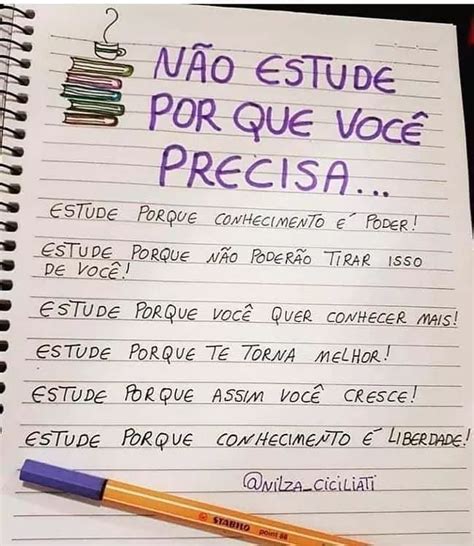 NÃO ESTUDE
POR QUE VOCÊ
PRECISA...
ESTUDE PORQUE CONHECIMENTO É PODER!
ESTUDE PORQUE NÃO PODERÃO TIRAR ISSO
DE VOCÊ!
ESTUDE PORQUE VOCÊ QUER CONHECER MAIS!
ESTUDE PORQUE TE TORNA MELHOR!
ESTUDE PORQUE ASSIM VOCÊ CRESCE!
ESTUDE PORQUE CONHECIMENTO É LIBERDADE!
@NILZA_CICILIATI
STABILO point 88